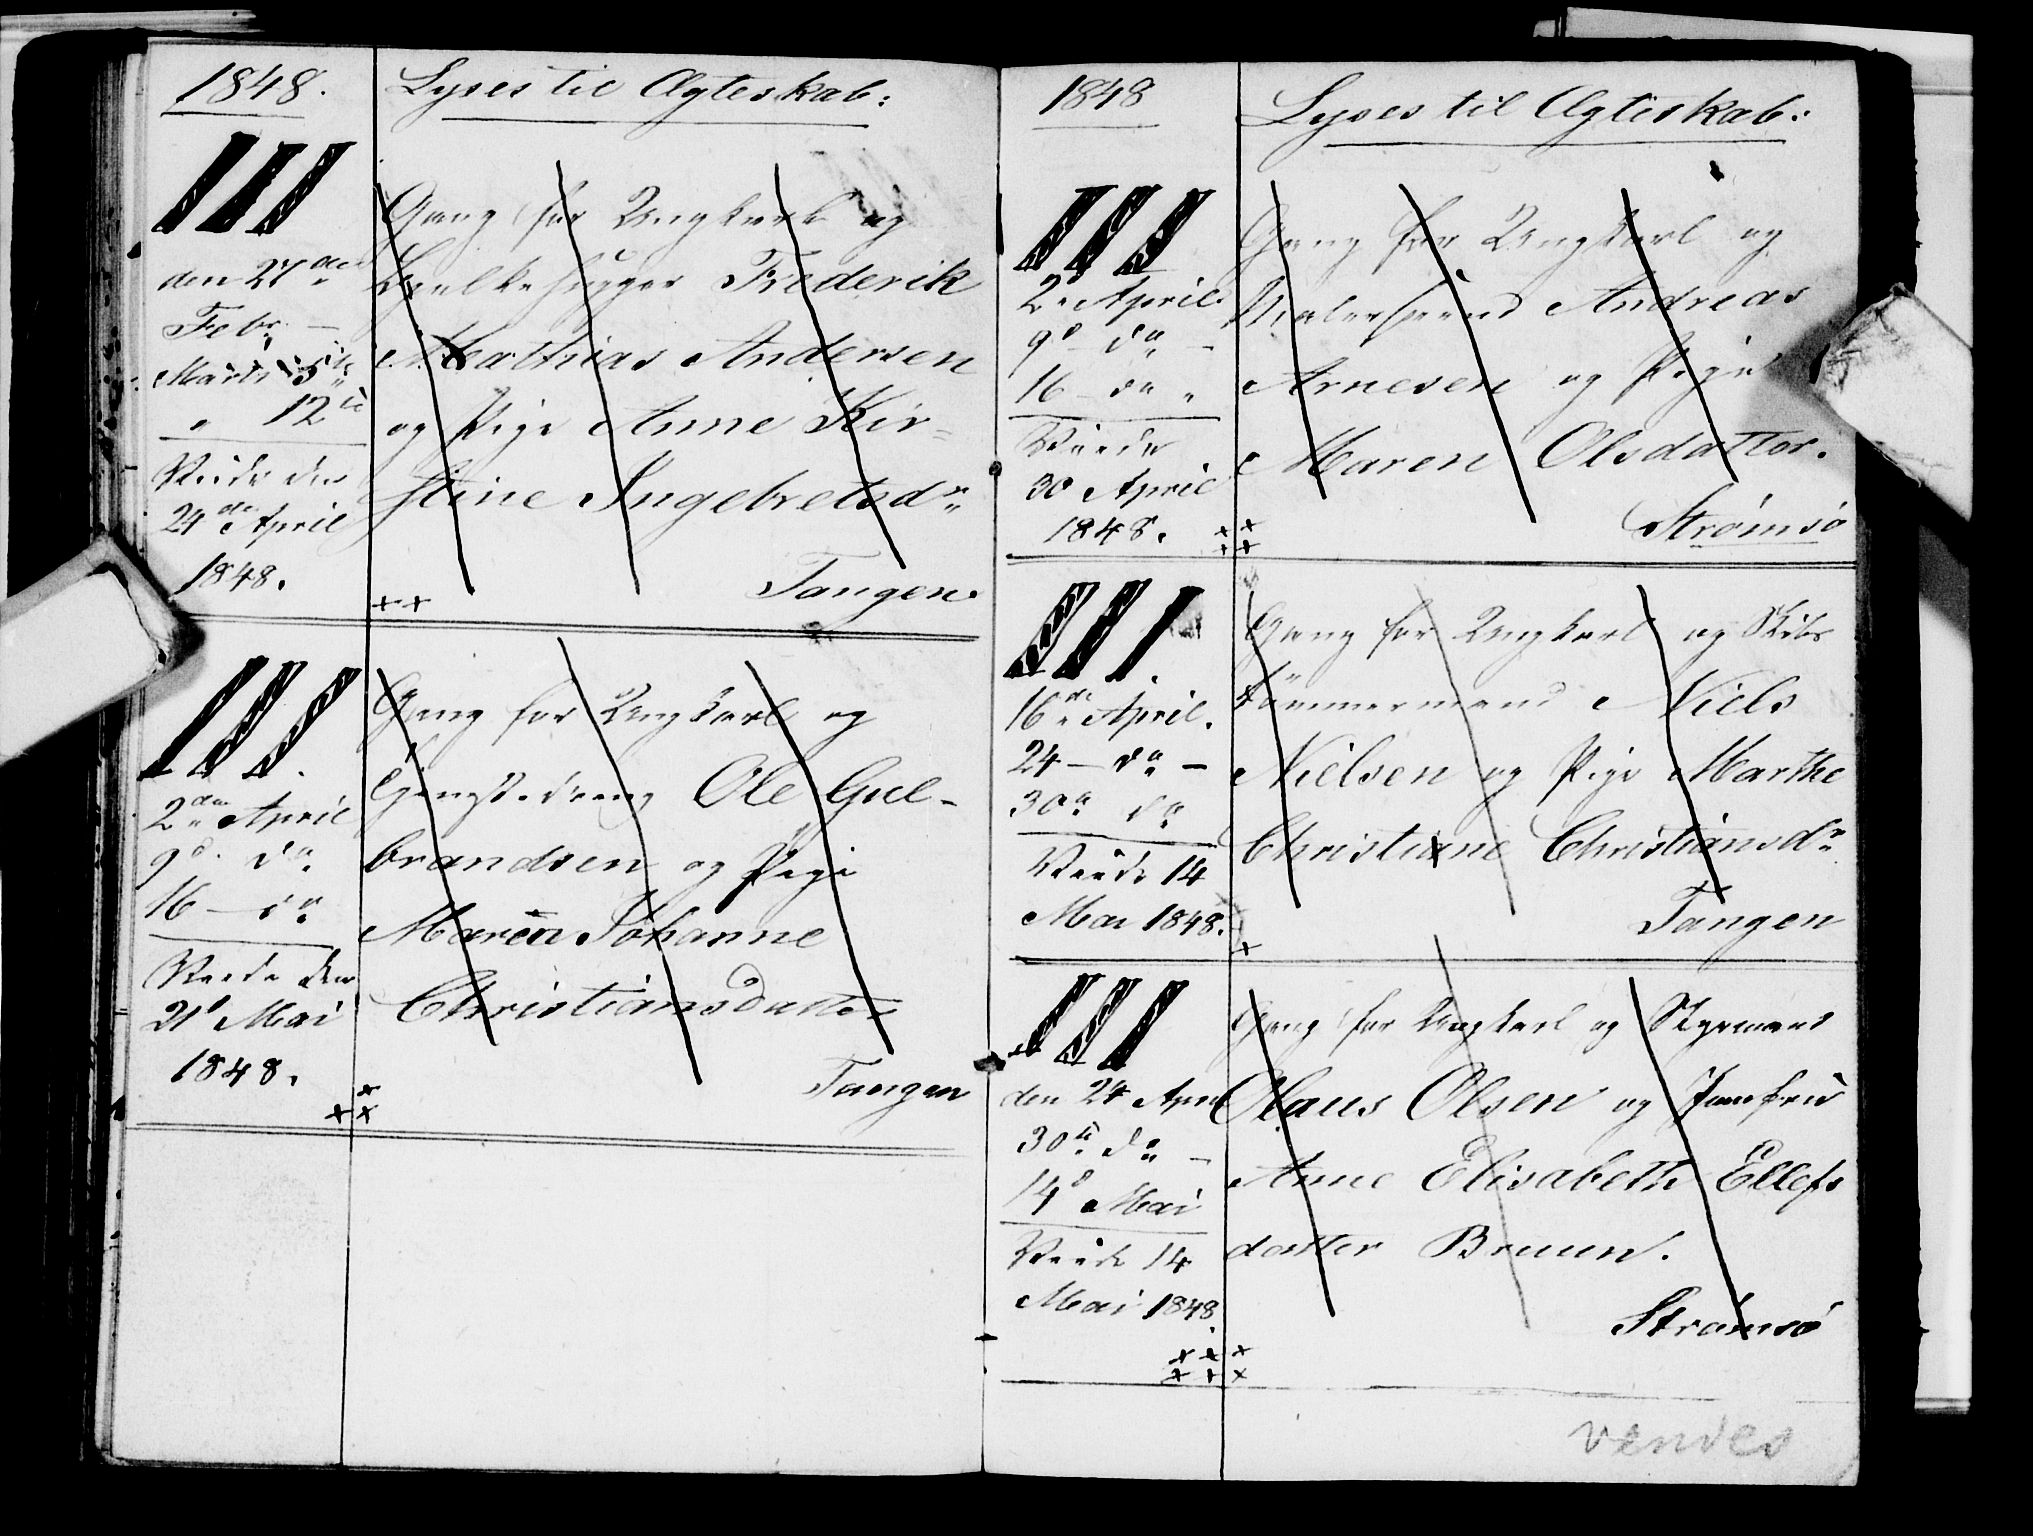 1848.
Lyses til Ægteskab:
III
Gang for Ungkarl og
den 27de
Bjelkehugger Frederik
Febr. –
Mathias Andersen
Marts 5te
" 12te
og Pige Anne Kir=
Viede den
stine Ingebretsdr
24de April
1848.
Tangen.
III
Gang for Ungkarl og
2den April
Ole Gul-
9d. do
brandsen og Pige
16 – do
Maren Johanne
Viede den
Christiansdatter
21d Mai
1848.
Tangen
1848
Lyses til Ægteskab:
III
Gang for Ungkarl og
2. April
Andreas
9d do –
16 – do "
Arnesen og Pige
Viede
Maren Olsdatter.
30 April
1848.
Strømsø
III
Gang for Ungkarl og Skibs
16de April.
tømmermand Niels
24 – do –
Nielsen og Pige Marthe
30te do
Christiane Christiansdr
Viede 14
Mai 1848.
Tangen
III
Gang for Ungkarl og Styrmand
den 24 April
Olaus Olsen og Jomfru
30te do –
Anne Elisabeth Ellefs
14d Mai
Viede 14
datter Bruun.
Mai 1848.
Strømsø
vendes